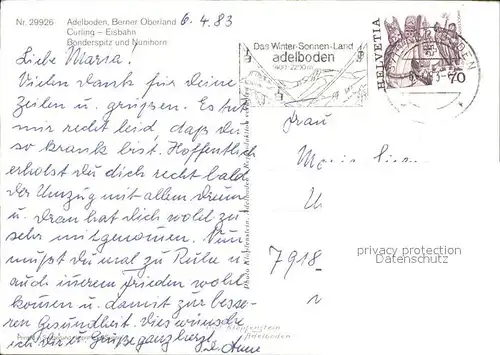 Nr. 29926 Adelboden, Berner Oberland
Curling – Eisbahn
Bonderspitz und Nünihorn
6.4.83
Liebe Maria!
Vielen Dank für deine
Zeilen u. grüssen. Es tut
mir recht leid, dass du
so krank bist. Hoffentlich
erholst du dich recht bald
der Umzug mit allem Drum
u. Dran hat dich wohl zu
sehr mitgenommen. Nun
musst du mal zu Ruhe u.
auch innerem Frieden wohl
kommen u. damit zur besse-
ren Gesundheit. Dies wünsche
ich dir u. Grüsse ganz herzl.
Anne
Das Winter-Sonnen-Land
adelboden
HELVETIA
70
Frau
7918
privacy protection
Datenschutz
Klopfenstein
Adelboden